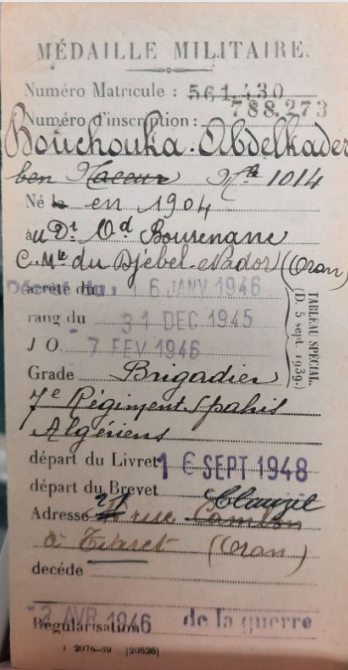 MÉDAILLE MILITAIRE.
Numéro Matricule : 561.430
Numéro d'inscription : 788.273
Bouchouka. Abdelkader
ben Naceur Mle 1014
Né le en 1904
au Dr Od Bousengane
C. Mte du Djebel-Nador (Oran)
Décret du : 16 JANV 1946
arrêté du
rang du 31 DEC 1945
J O. 7 FEV 1946
TABLEAU SPÉCIAL.
(D. 5 sept. 1939.)
Grade Brigadier
7e Régiment Spahis
Algériens
départ du Livret 1 6 SEPT 1948
départ du Brevet
Clauzel
Adresse rue Cambon
à Tiaret (Oran)
décédé
2 AVR 1946 de la guerre
Régularisation